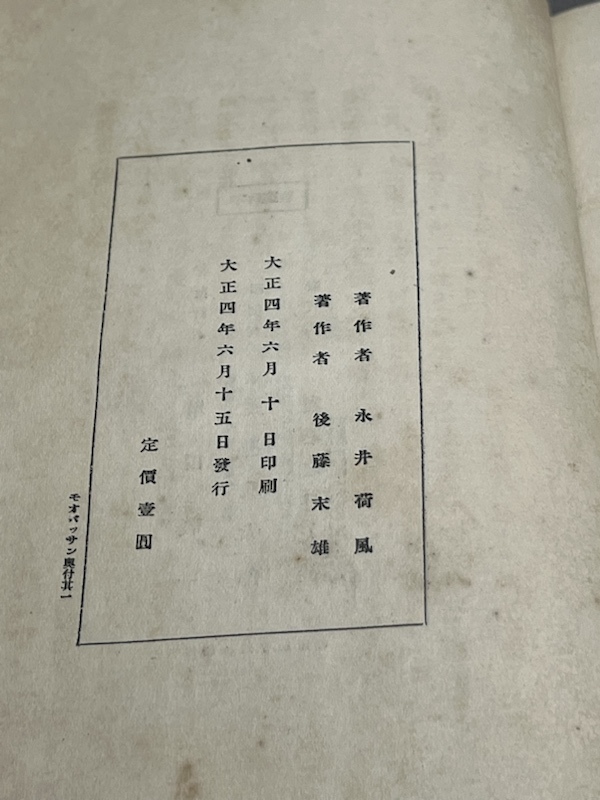 著作者 永井荷風
著作者 後藤末雄
大正四年六月十日印刷
大正四年六月十五日發行
定價壹圓
モオパッサン奧付其一